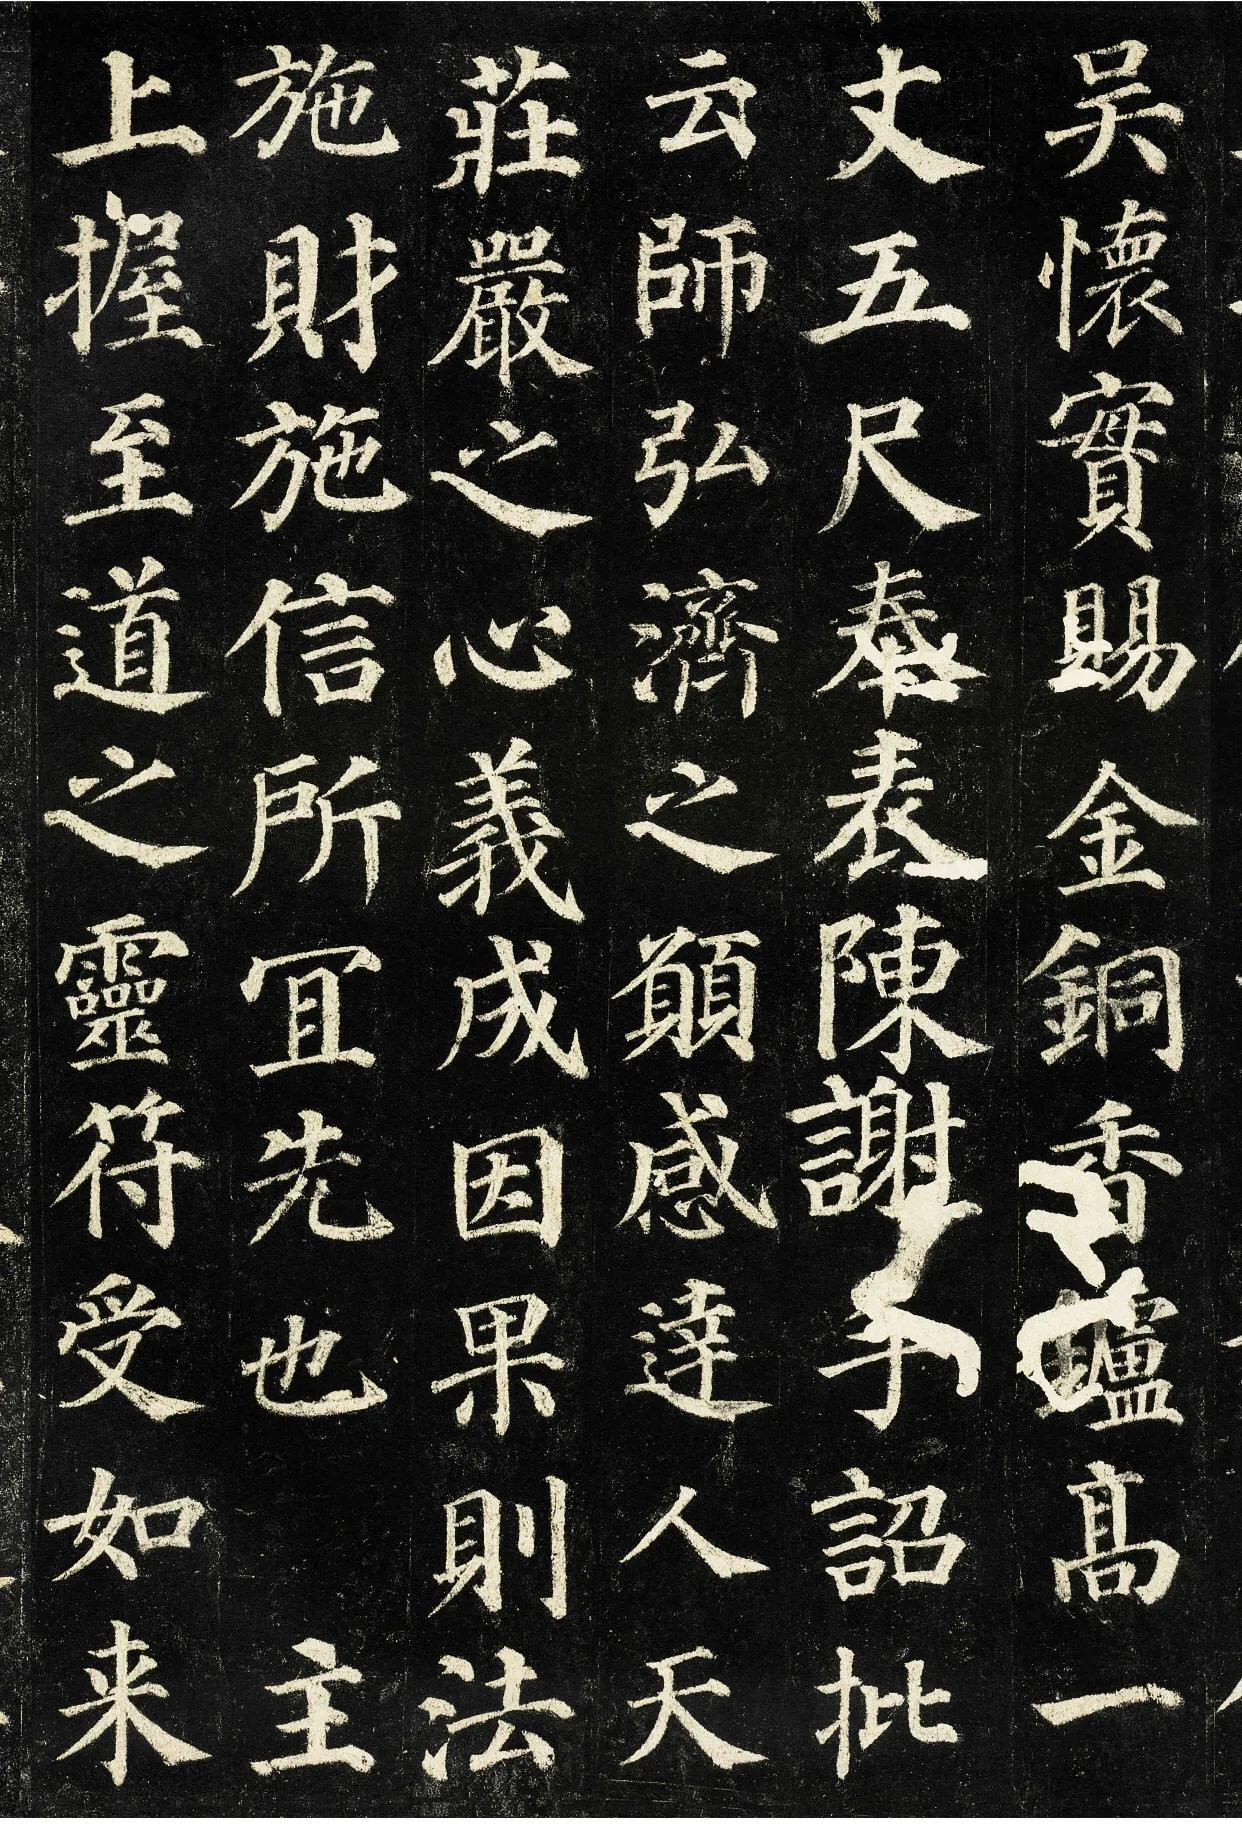 吴懷實賜金銅香爐高一
丈五尺奉表陳謝手詔批
云師弘濟之願感達人天
莊嚴之心義成因果則法
施財施信所冝先也主
上握至道之靈符受如来